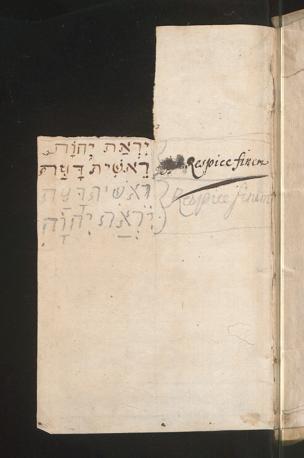 יִרְאַת יְהוָֹה
רֵאשִׁית דָּעַת
Respice finem
רֵאשִׁית דָּעַת
Respice finem
יִרְאַת יְהוָֹה